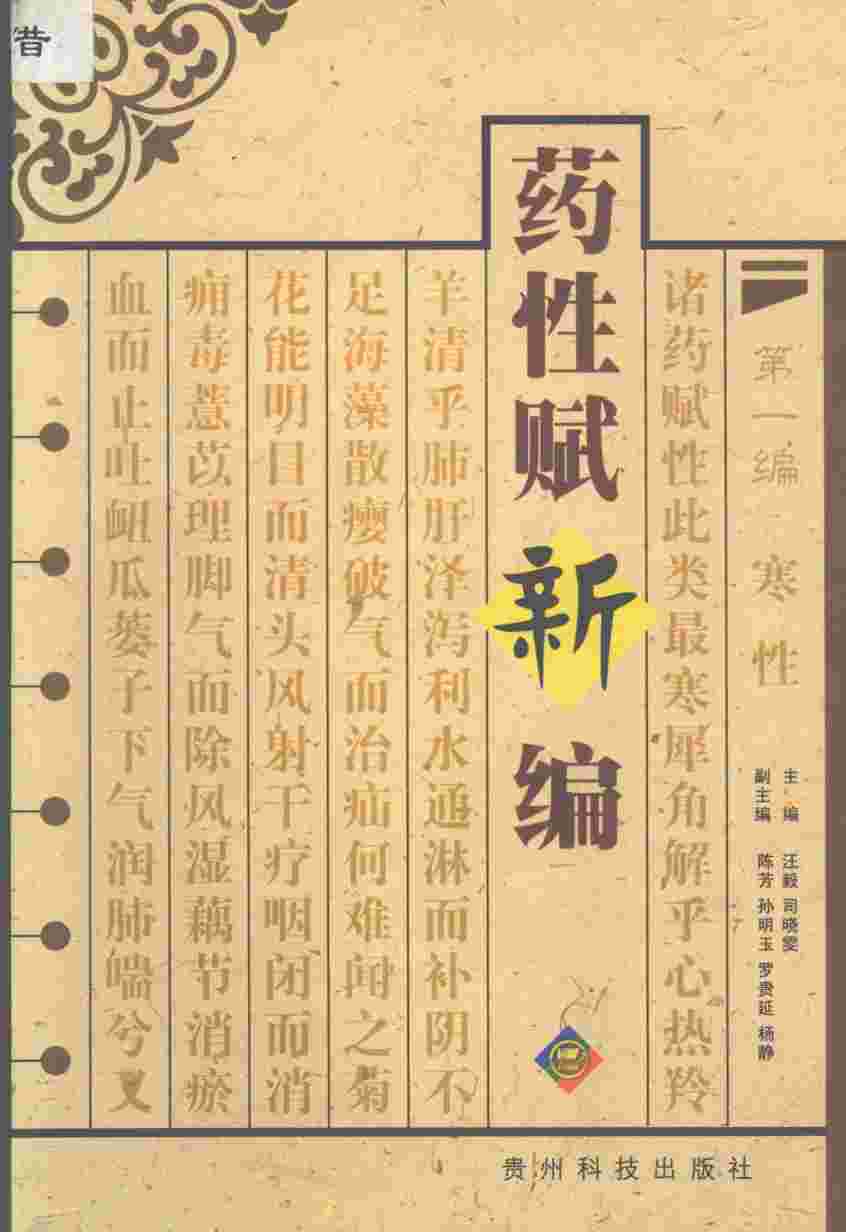 第一编 寒性
主编 汪毅 司晓雯
副主编 陈芳 孙明玉 罗贵延 杨静
诸药赋性此类最寒犀角解乎心热羚
药性赋新编
羊清乎肺肝泽泻利水通淋而补阴不
足海藻散瘿破气而治疝何难闻之菊
花能明目而清头风射干疗咽闭而消
痈毒薏苡理脚气而除风湿藕节消瘀
血而止吐衄瓜蒌子下气润肺喘兮又
贵州科技出版社